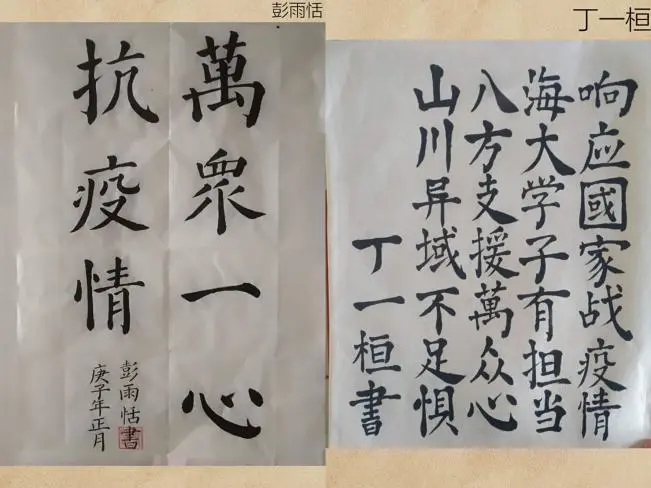 彭雨恬
萬眾一心
抗疫情
彭雨恬書
庚子年正月
丁一桓
响应國家战疫情
海大学子有担当
八方支援萬众心
山川异域不足惧
丁一桓書